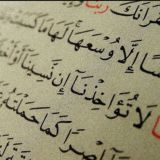 غُفْرَانَكَ رَبَّنَا
إِلَّا وُسْعَهَا لَهَا مَا كَسَبَتْ
لَا تُؤَاخِذْنَا إِن نَّسِينَا أَوْ
إِصْرًا كَمَا حَمَلْتَهُ